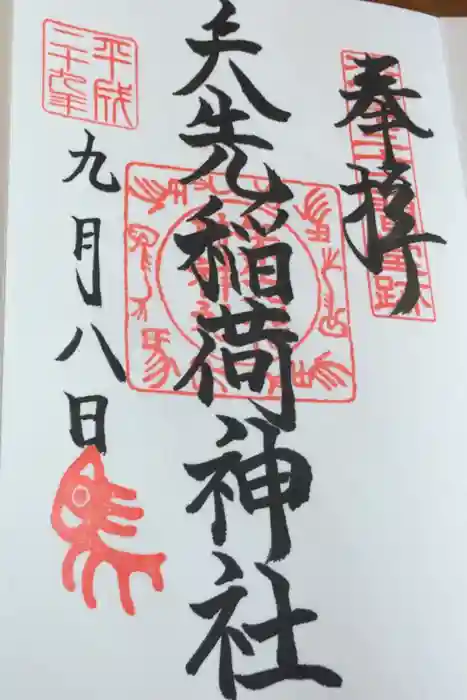 奉拝
矢先稲荷神社
平成
二十九年
九月八日